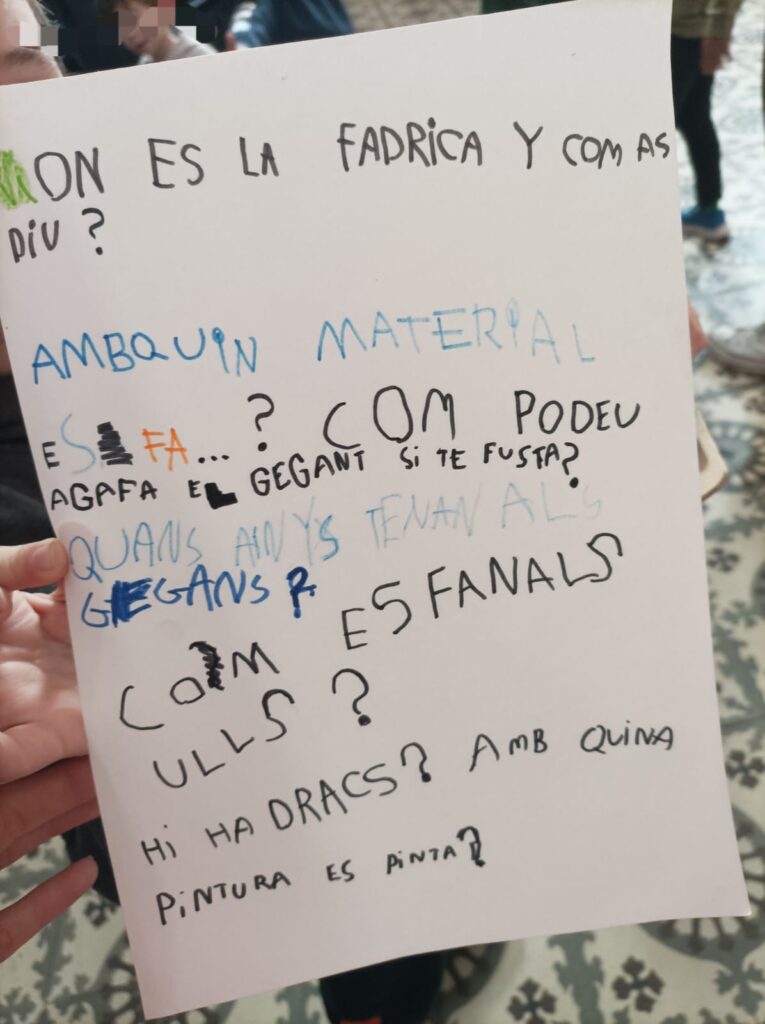 ON ES LA FADRICA Y COM AS
DIU?
AMBQUIN MATERIAL
ES FA...? COM PODEU
AGAFA EL GEGANT SI TE FUSTA?
QUANS AINYS TENAN ALS
GEGANS?
COM ESFANALS
ULLS?
HI HA DRACS? AMB QUINA
PINTURA ES PINTA?